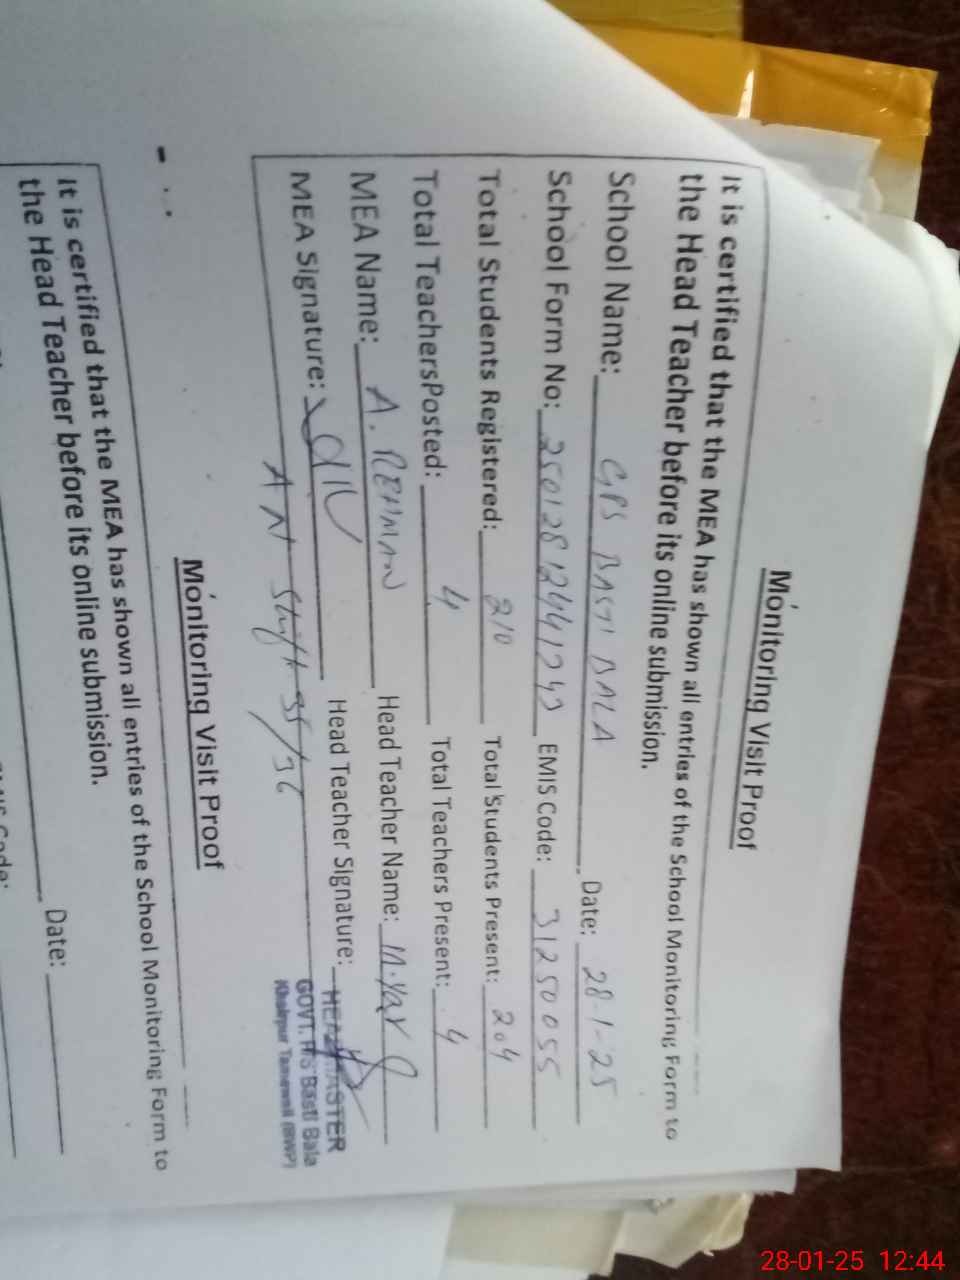 Monitoring Visit Proof
It is certified that the MEA has shown all entries of the School Monitoring Form to
the Head Teacher before its online submission.
School Name: GPS BASTI BALA Date: 28-1-25
School Form No: 25012812441242 EMIS Code: 31250055
Total Students Registered: 210 Total Students Present: 204
Total TeachersPosted: 4 Total Teachers Present: 4
MEA Name: A. REHMAN Head Teacher Name: M. Yar
MEA Signature: Head Teacher Signature:
HEADMASTER
GOVT. P/S Basti Bala
Khairpur Tamewali (BWP)
35/36
Monitoring Visit Proof
It is certified that the MEA has shown all entries of the School Monitoring Form to
the Head Teacher before its online submission.
Date:
28-01-25 12:44